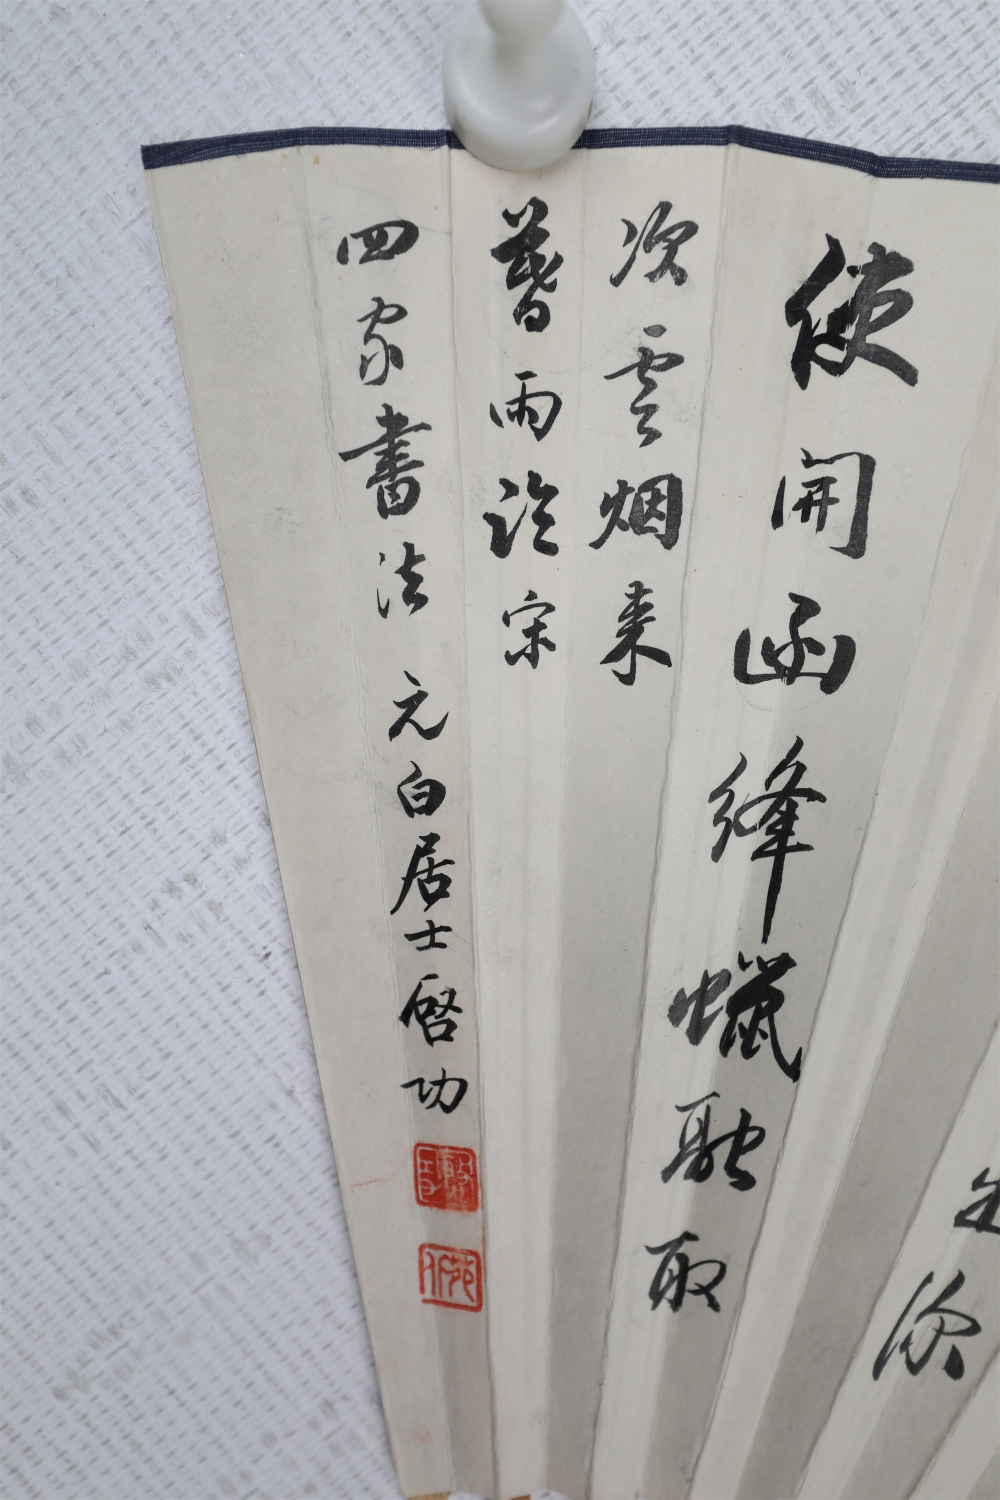 使開函絳蠟融取
次雲烟来
舊雨論宋
四家書法 元白居士啓功